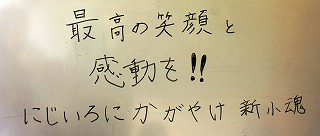 最高の笑顔と
感動を!!
にじいろにかがやけ 新小魂